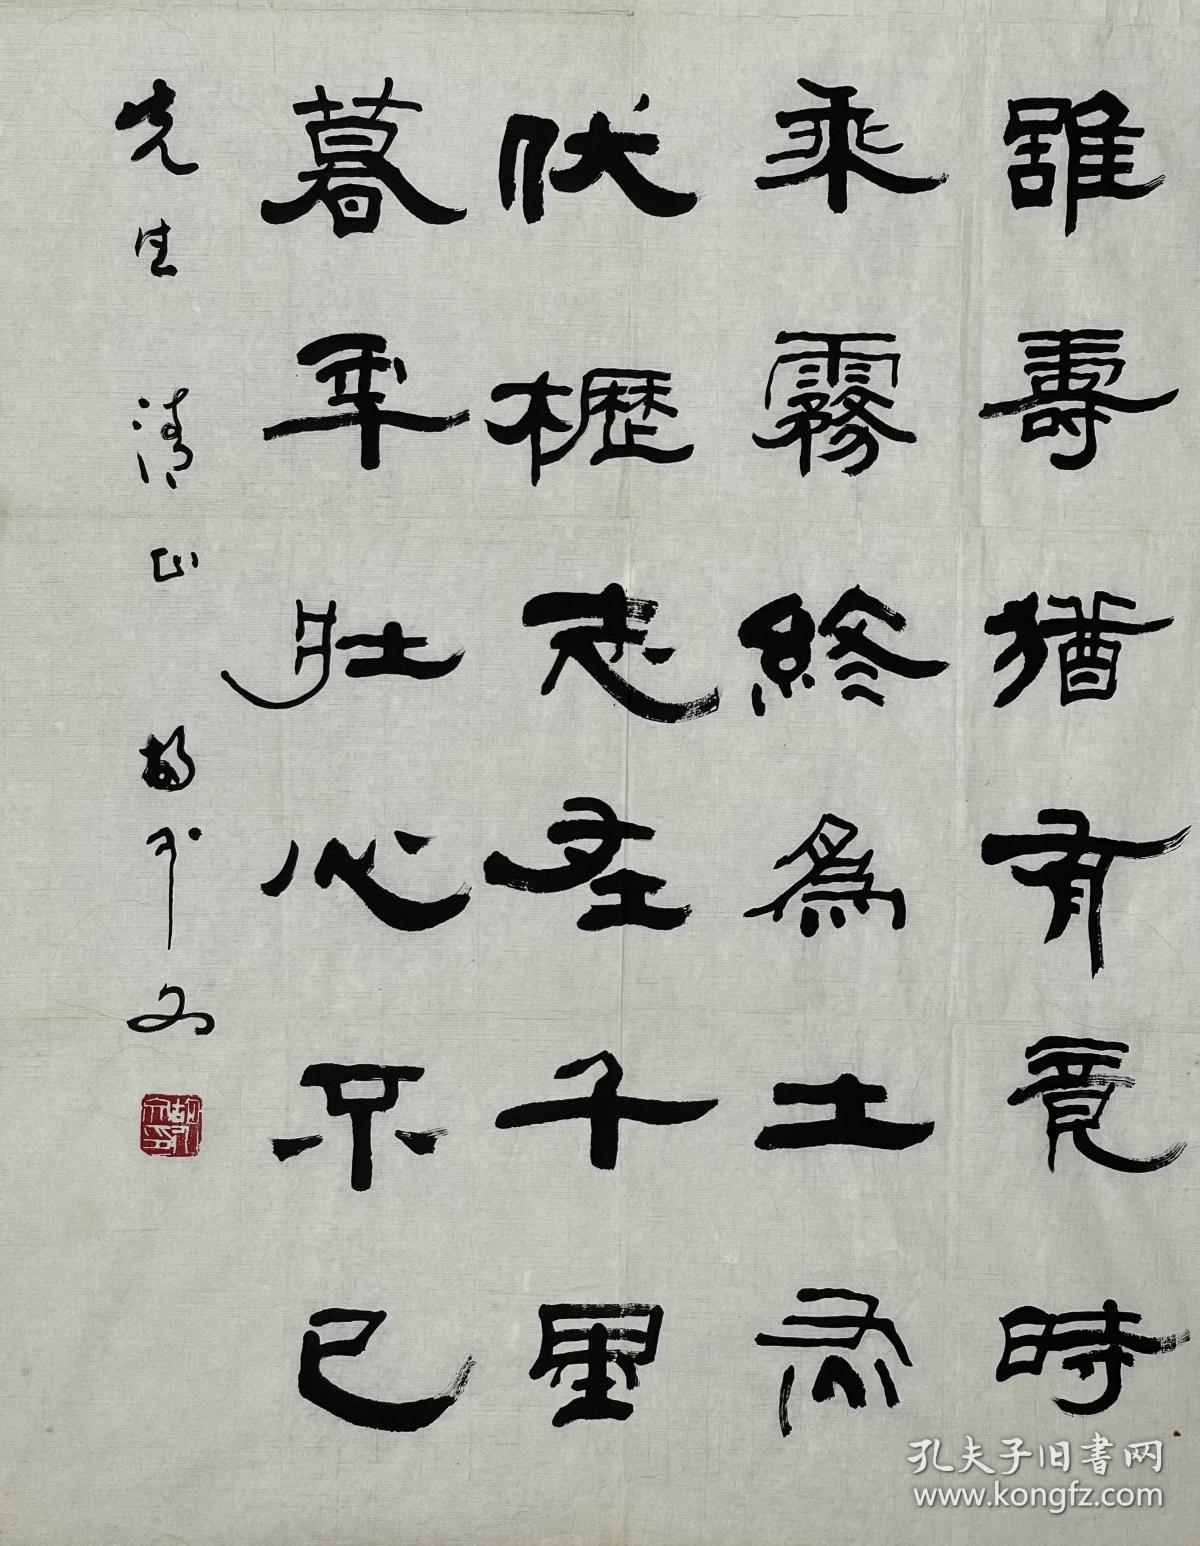 雖壽猶有竟時
乘霧終爲土灰
伏櫪志在千里
暮年壯心不已
先生 清正
孔夫子旧書网
www.kongfz.com